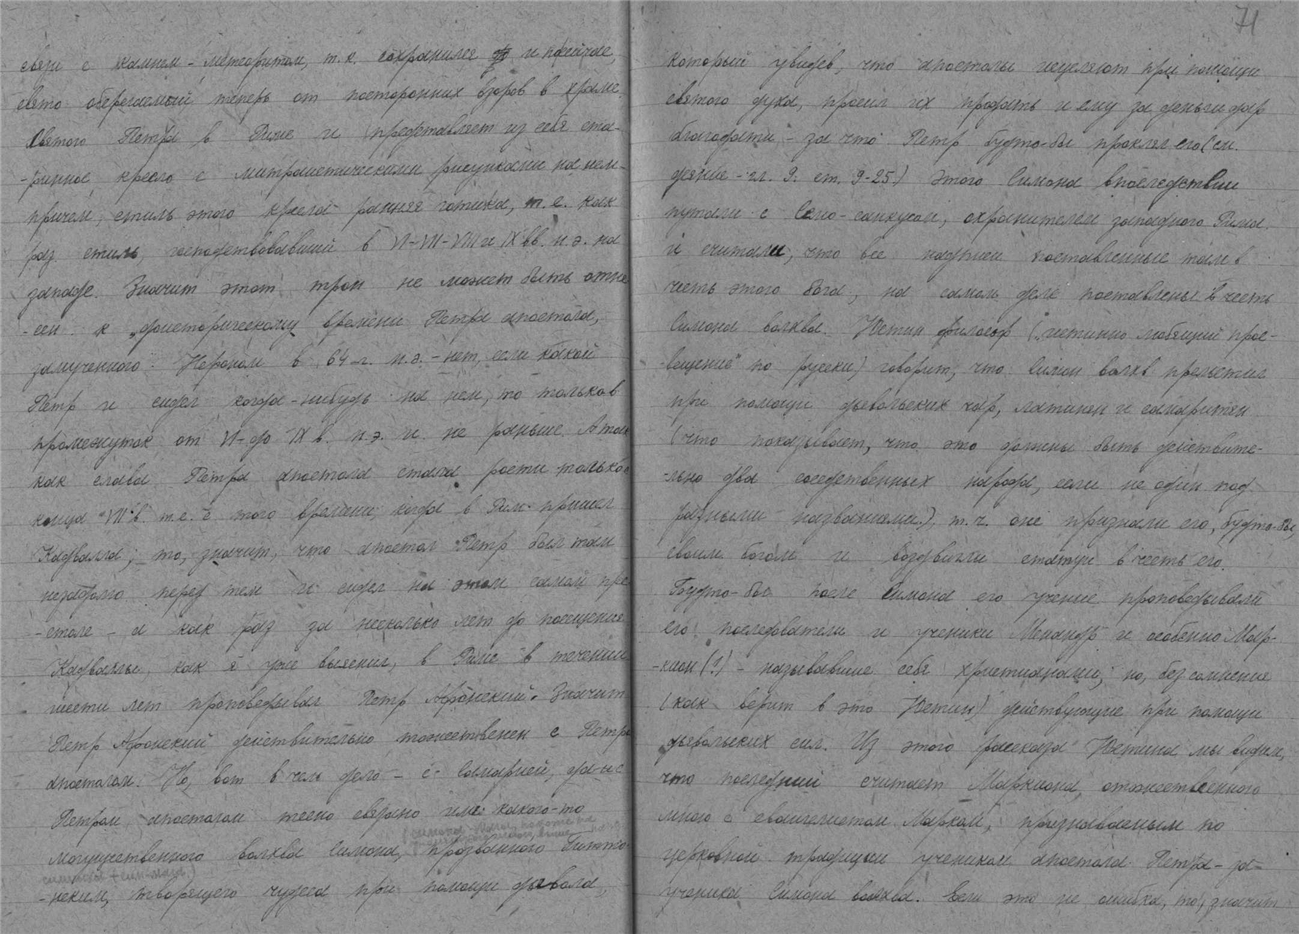 связи с камнем-метеоритом, т.к. сохранился и поныне,
свято оберегаемый теперь от посторонних взоров в храме
святого Петра в Риме и представляет из себя ста-
-ринное кресло с митраистическими рисунками на нем-
причем, стиль этого кресла ранняя готика, т.е. как
раз стиль, господствовавший в VI-VII-VIII и IX вв. н.э. на
западе. Значит этот трон не может быть отне-
-сен к доисторическому времени Петра апостола,
замученного Нероном в 64-г. н.э. - нет, если какой
Петр и сидел когда-нибудь на нем, то только в
промежуток от VI-до IX в. н.э. и не раньше. А так
как слава Петра апостола стала расти только с
конца VII в. т.е. с того времени, когда в Рим пришел
Кадвалла; то, значит, что апостол Петр был там
незадолго перед тем и сидел на этом самом пре-
-столе - и как раз за несколько лет до посещения
Кадваллы, как я уже выяснил, в Риме в течении
шести лет проповедывал Петр Афонский. Значит
Петр Афонский действительно тожественен с Петром
апостолом. Но, вот в чем дело - с Самарией, да и с
Петром апостолом тесно связано имя какого-то
могущественного волхва Симона, прозванного Гитто-
-нским, творящего чудеса при помощи дьявола,
71
который увидев, что апостолы исцеляют при помощи
святого духа, просил их продать и ему за деньги дар
благодати - за что Петр будто-бы проклял его (см.
деяние - гл. 9. ст. 9-25) Этого Симона впоследствии
путали с Семо-санкусом, охранителем западного Рима
и считали, что все надписи поставленные там в
честь этого бога, на самом деле поставлены в честь
Симона волхва. Юстин философ ("истинно любящий прос-
вещение" по русски) говорит, что Симон волхв прельстил
при помощи дьявольских чар, латинян и самаритян
(что показывает, что это должны быть действите-
-льно два соседственных народа, если не один под
разными названиями.), т.ч. они признали его, будто-бы,
своим богом и воздвигли статуи в честь его.
Будто-бы после Симона его учение проповедывали
его последователи и ученики Менандр и особенно Мар-
-кион (!) - называвшие себя христианами; но, без сомнения
(как верит в это Юстин) действующие при помощи
дьявольских сил. Из этого рассказа Юстина мы видим,
что последний считает Маркиона, отожествленного
мною с евангелистом Марком, признаваемым по
церковной традиции учеником апостола Петра - за
ученика Симона волхва. Если это не ошибка, то, значит